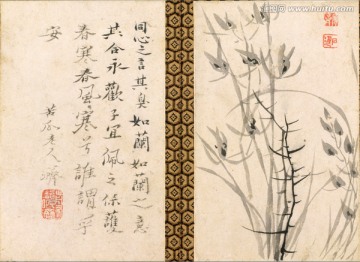 同心之言其臭如蘭如蘭之意
其合永歡子宜佩之保護
春寒春風寒兮誰謂乎
安
苦瓜老人濟
www.huitu.com